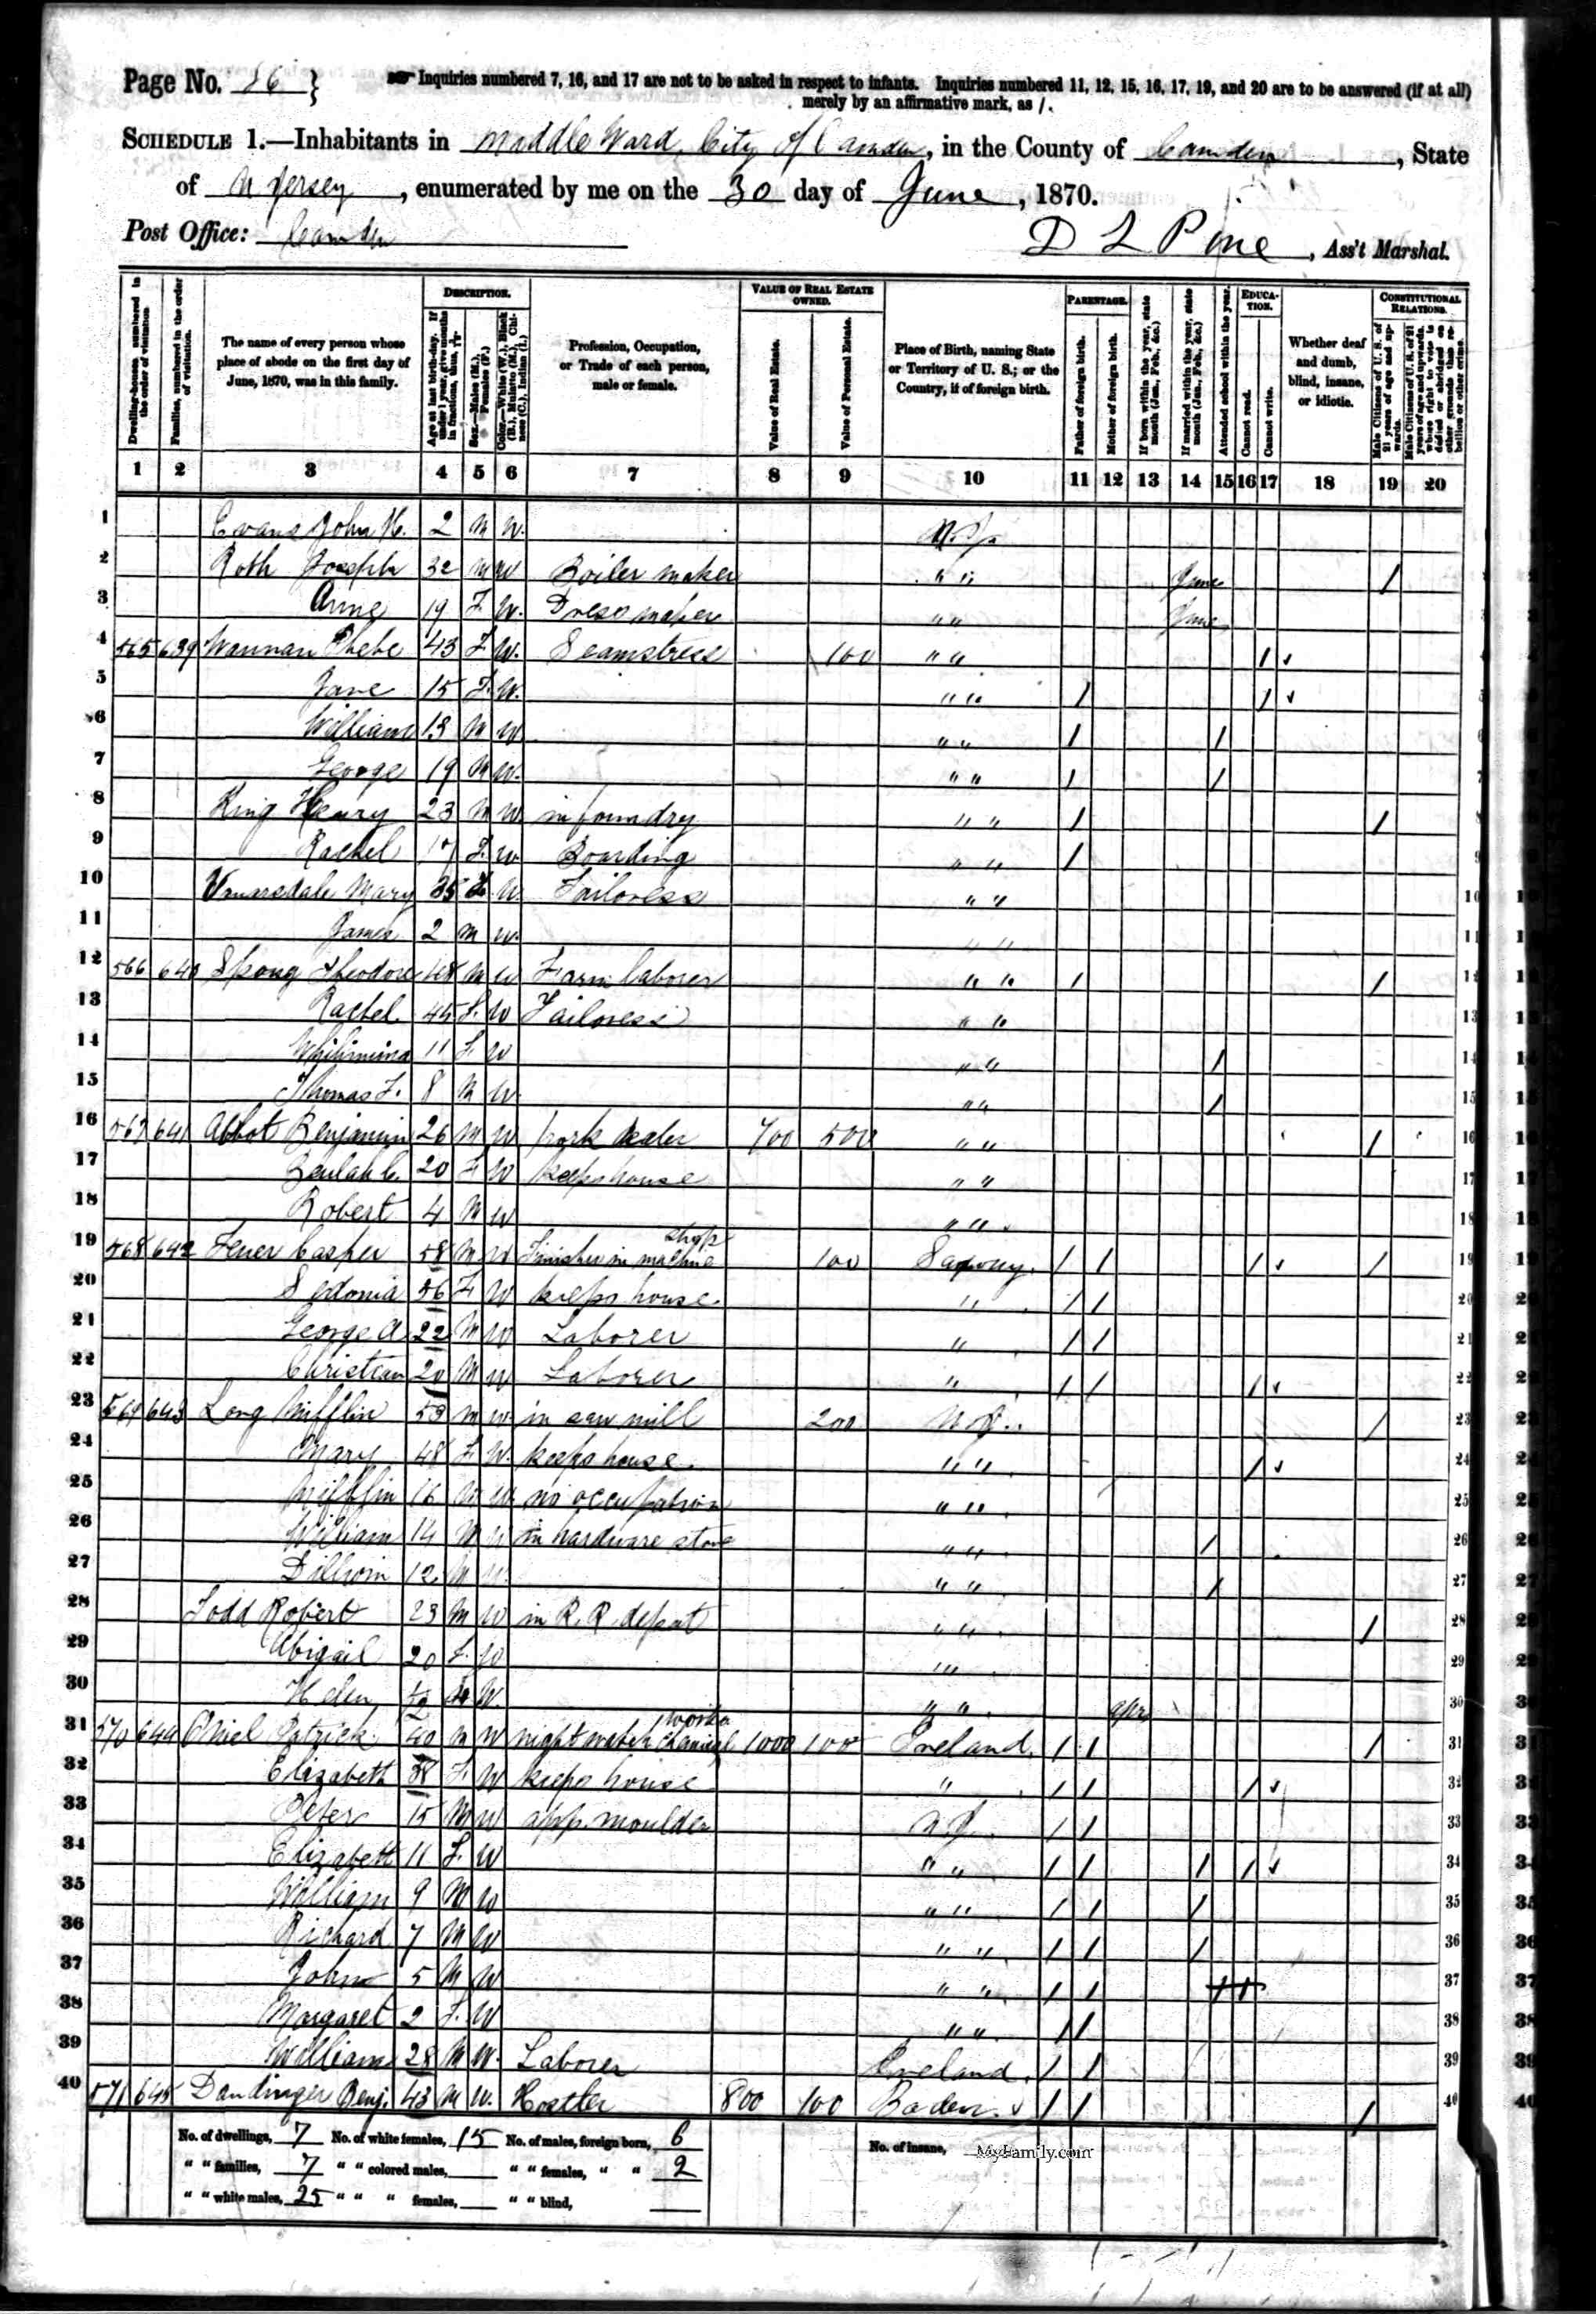 Page No. 86 }
Inquiries numbered 7, 16, and 17 are not to be asked in respect to infants. Inquiries numbered 11, 12, 15, 16, 17, 19, and 20 are to be answered (if at all)
merely by an affirmative mark, as /.
SCHEDULE 1.—Inhabitants in Middle Ward, City of Camden, in the County of Camden, State
of N Jersey, enumerated by me on the 30 day of June, 1870.
Post Office: Camden
D L Pine, Ass't Marshal.
Dwelling-houses, numbered in the order of visitation.
Families, numbered in the order of visitation.
The name of every person whose place of abode on the first day of June, 1870, was in this family.
DESCRIPTION.
Age at last birth-day. If under 1 year, give months in fractions, thus,
Sex.—Males (M.), Females (F.)
Color.—White (W.), Black (B.), Mulatto (M.), Chinese (C.), Indian (I.)
Profession, Occupation, or Trade of each person, male or female.
VALUE OF REAL ESTATE OWNED.
Value of Real Estate.
Value of Personal Estate.
Place of Birth, naming State or Territory of U. S.; or the Country, if of foreign birth.
PARENTAGE.
Father of foreign birth.
Mother of foreign birth.
If born within the year, state month (Jan., Feb., &c.)
If married within the year, state month (Jan., Feb., &c.)
Attended school within the year.
EDUCATION.
Cannot read.
Cannot write.
Whether deaf and dumb, blind, insane, or idiotic.
CONSTITUTIONAL RELATIONS.
Male Citizens of U. S. of 21 years of age and upwards.
Male Citizens of U. S. of 21 years of age and upwards, whose right to vote is denied or abridged on other grounds than rebellion or other crime.
1 2 3 4 5 6 7 8 9 10 11 12 13 14 15 16 17 18 19 20
1 Evans John H. 2 M W. N. J. 1
2 Roth Joseph 32 M W Boiler maker " " June / 2
3 Anne 19 F. W. Dress maker " " June 3
4 565 639 Wannan Phebe 43 F. W. Seamstress 100 " " / 4
5 Jane 15 F. W. " " / / 5
6 William 13 M W " " / / 6
7 George 19 M W. " " / / 7
8 King Henry 23 M W in foundry " " / / 8
9 Rachel 17 F. W Boarding " " / 9
10 Vanarsdale Mary 35 F. W. Tailoress " " 10
11 James 2 M W. " " 11
12 566 640 Spong Theodore 48 M W Farm laborer " " / / 12
13 Rachel 45 F. W Tailoress " " 13
14 11 F. W " " / 14
15 Thomas F. 8 M W. " " / 15
16 567 641 Abbot Benjamin 26 M W pork dealer 700 500 " " / 16
17 Beulah C. 20 F. W keeps house " " 17
18 Robert 4 M W " " 18
19 568 642 Fener Casper 58 M W Finisher in machine shop 100 Saxony. / / / / 19
20 Sedonia 56 F. W keeps house. " / / 20
21 George A 22 M W Laborer " / / 21
22 Christian 20 M W Laborer " / / / 22
23 569 643 Long Mifflin 53 M W. in saw mill 200 N J. / 23
24 Mary 48 F. W. keeps house. " " / 24
25 Mifflin 16 M W. no occupation " " 25
26 William 14 M W in hardware store " " / 26
27 Dillwin 12 M W. " " / 27
28 Todd Robert 23 M W in R. R. depot " " / 28
29 Abigail 20 F. W " " 29
30 Helen F. W. " " apr 30
31 570 644 Oniel Patrick 40 M W night watch chemical works 1000 100 Ireland. / / / 31
32 Elizabeth 38 F. W keeps house " / / / 32
33 Peter 15 M W app. moulder N. J. / / 33
34 Elizabeth 11 F. W " " / / / / 34
35 William 9 M W " " / / / 35
36 Richard 7 M W " " / / / 36
37 John 5 M W " " / / 37
38 Margaret 2 F. W " " / / 38
39 William 28 M W. Laborer Ireland. / / 39
40 571 645 Dandinger Benj. 43 M W. Hostler 800 100 Baden. / / / 40
No. of dwellings, 7 No. of white females, 15 No. of males, foreign born, 6 No. of insane,
" " families, 7 " " colored males, " " females, " " 2
" " white males, 25 " " " females, " " blind,
MyFamily.com